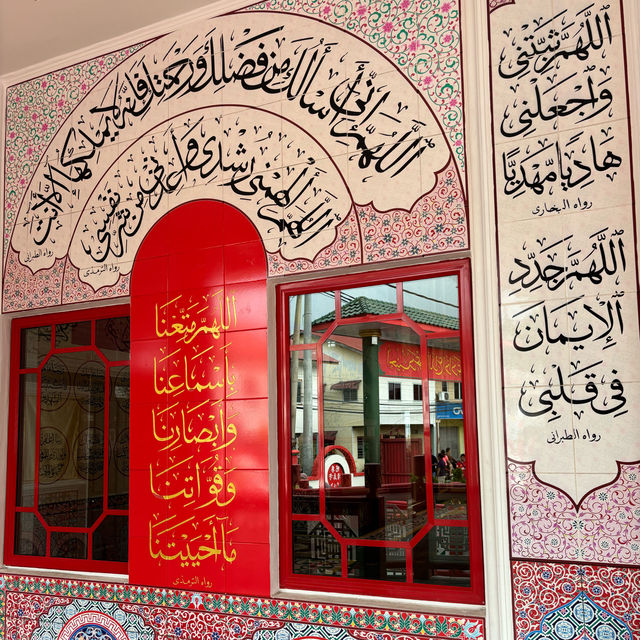 اللهم إني أسألك من فضلك ورحمتك فإنه لا يملكها إلا أنت
رواه الطبراني
اللهم ألهمني رشدي وأعذني من شر نفسي
رواه الترمذي
اللهم متعنا
بأسماعنا
وأبصارنا
وقواتنا
ما أحييتنا
رواه الترمذي
اللهم ثبتني
واجعلني
هاديا مهديا
رواه البخاري
اللهم جدد
الإيمان
في قلبي
رواه الطبراني